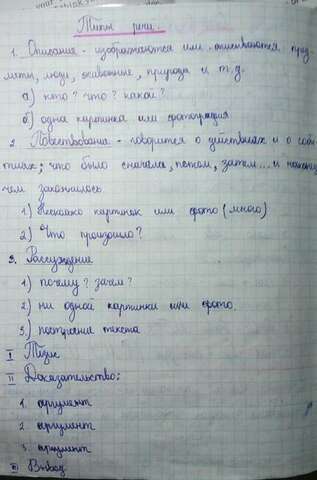 Типы речи.
1. Описание - изображаются или описываются пред
меты, люди, животные, природа и т.д.
а) кто? что? какой?
б) одна картинка или фотография
2. Повествование - говорится о действиях и о собы
тиях; что было сначала, потом, затем... и наконец
чем закончилось
1) Несколько картинок или фото (много)
2) Что произошло?
3. Рассуждение
1) почему? зачем?
2) ни одной картинки или фото.
3) построение текста
I Тезис
II Доказательство:
1. аргумент
2. аргумент
3. аргумент
III Вывод